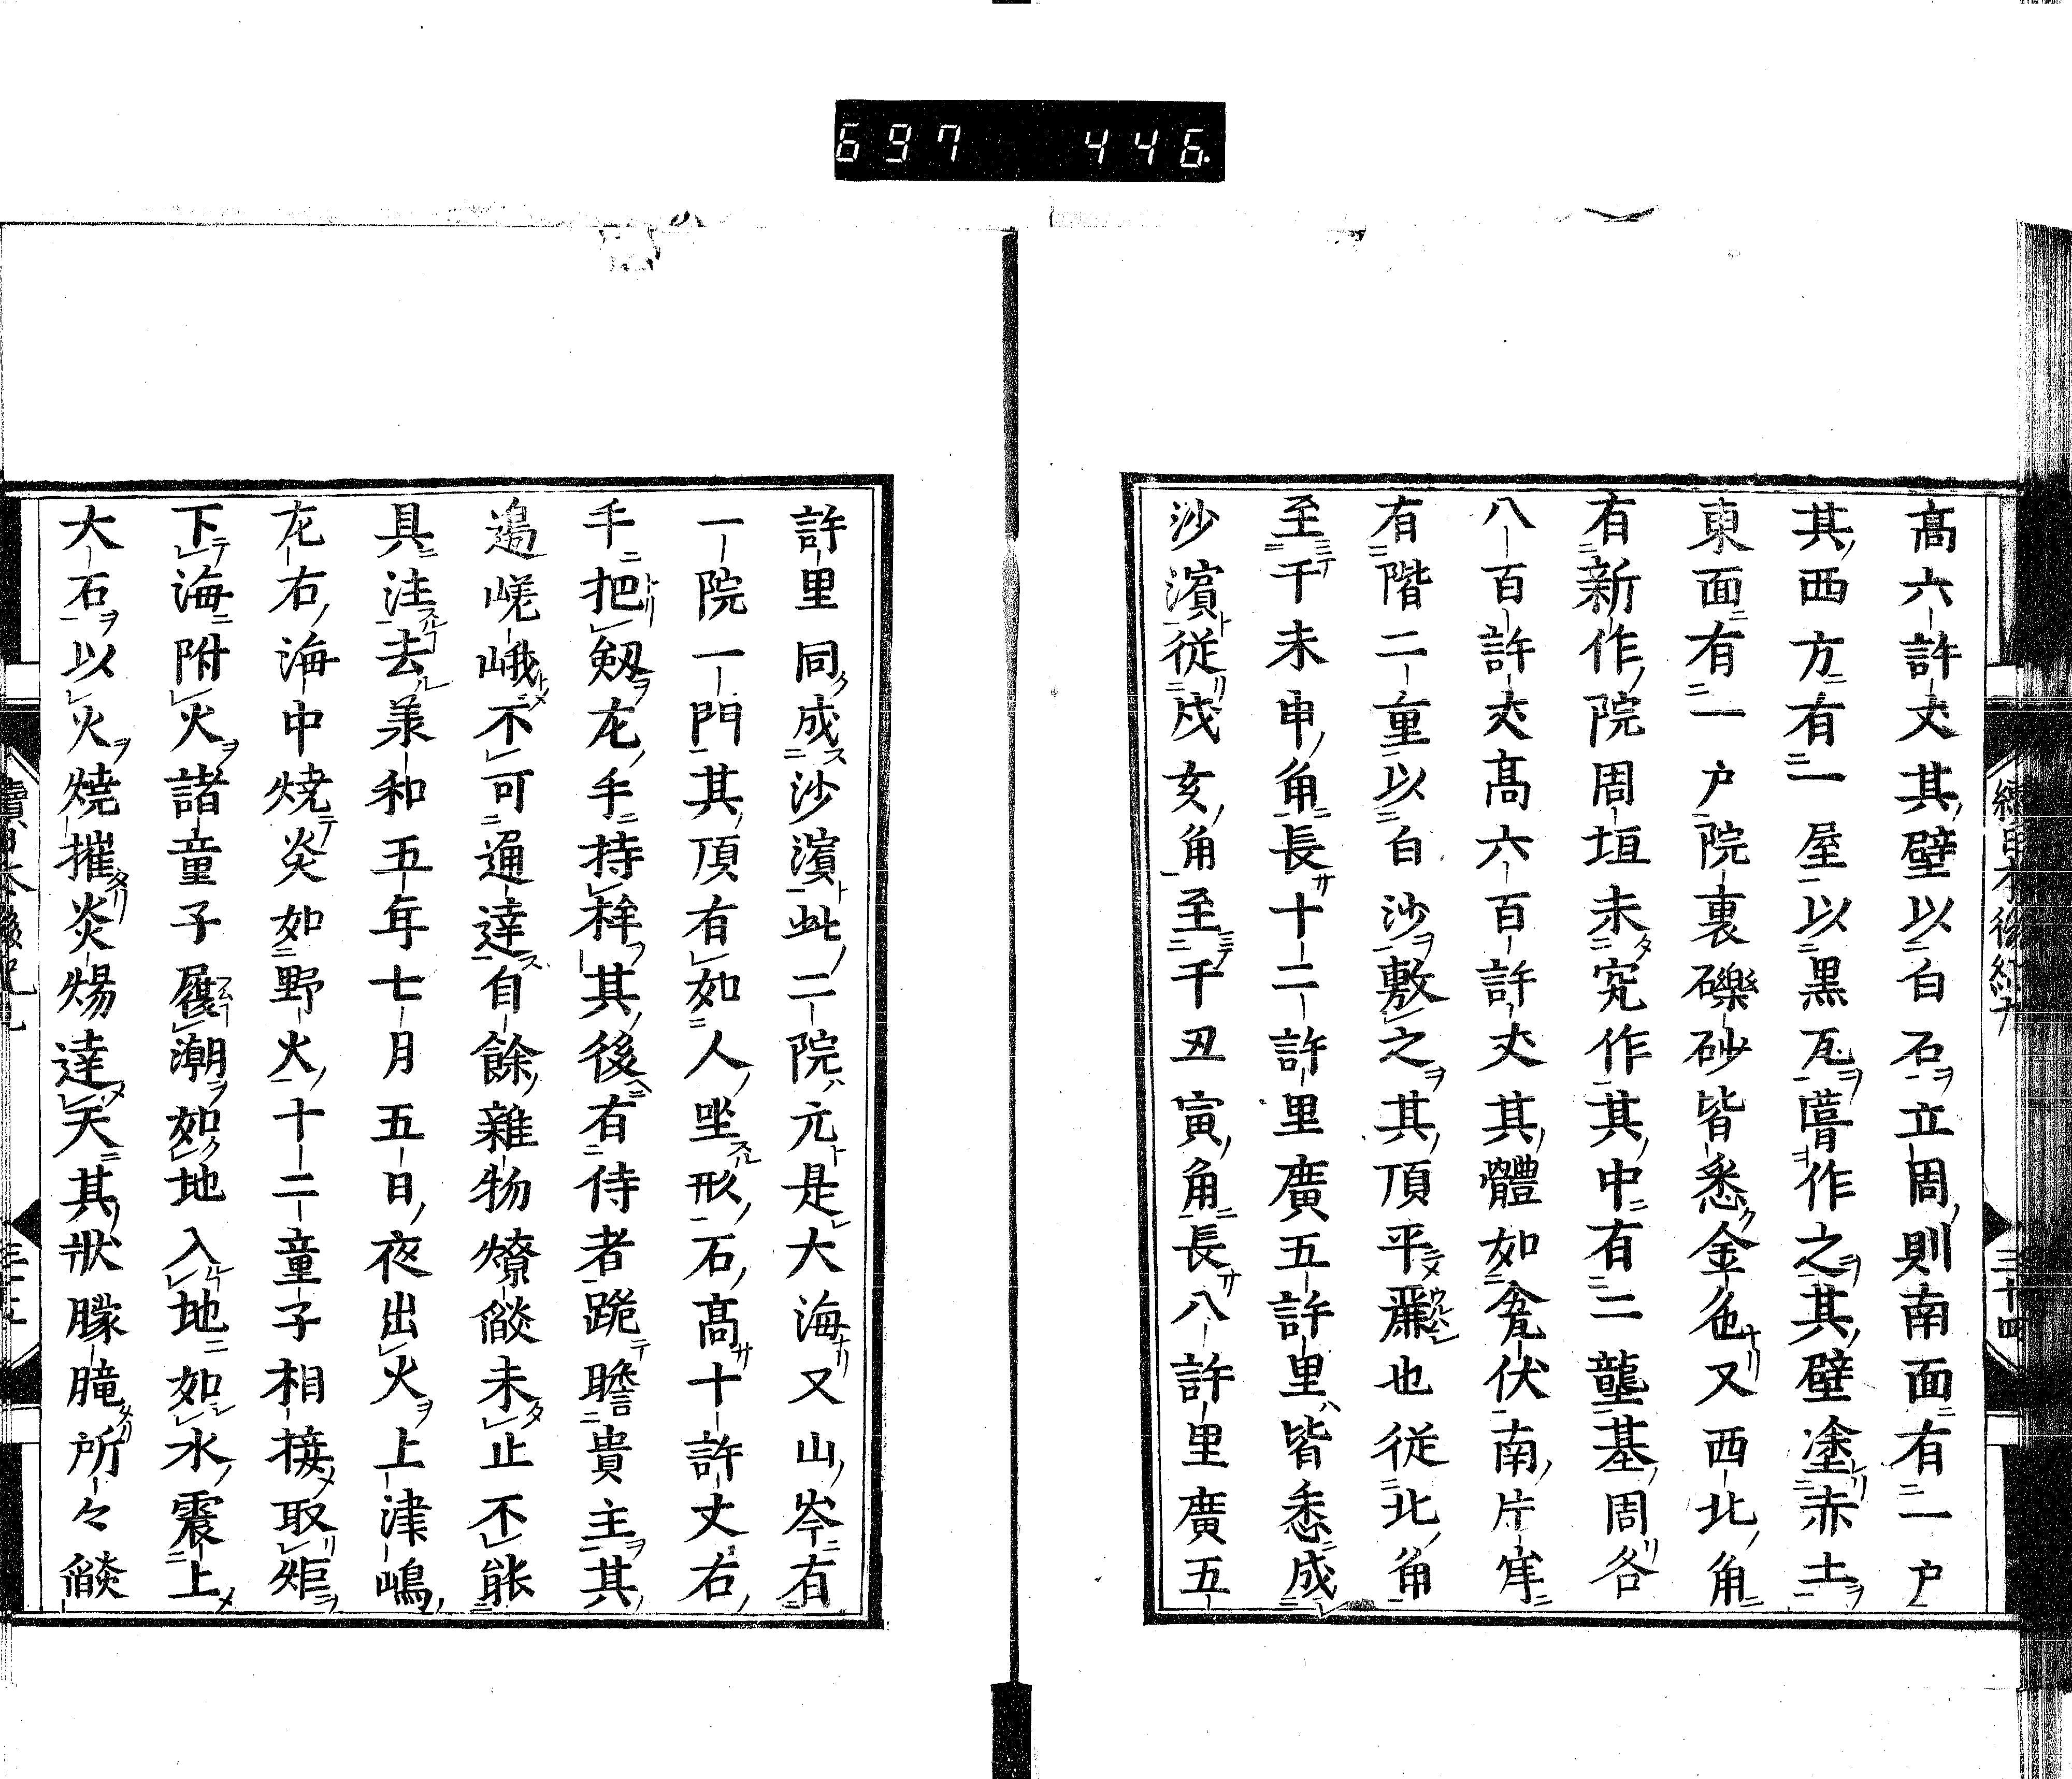 697 446.
高六許丈其壁以白石立周則南面有一户
其西方有一屋以黒瓦葺作之其壁塗赤土
東面有一户院裏礫砂皆悉金色又西北角
有新作院周垣未究作其中有二壟基周各
八百許丈高六百許丈其體如瓮伏南片岸
有階二重以白沙敷之其頂平麗也従北角
至于未申角長十二許里廣五許里皆悉成
沙濱従戌亥角至于丑寅角長八許里廣五
許里同成沙濱此二院元是大海又山岑有
一院一門其頂有如人坐形石高十許丈右
手把劔左手持桙其後有侍者跪瞻貴主其
邊嵯峨不可通達自餘雜物燎燄未止不能
具注去羕和五年七月五日夜出火上津嶋
左右海中焼炎如野火十二童子相接取炬
下海附火諸童子履潮如地入地如水震上
大石以火焼摧炎煬達天其狀朦朣所々燄
三十四